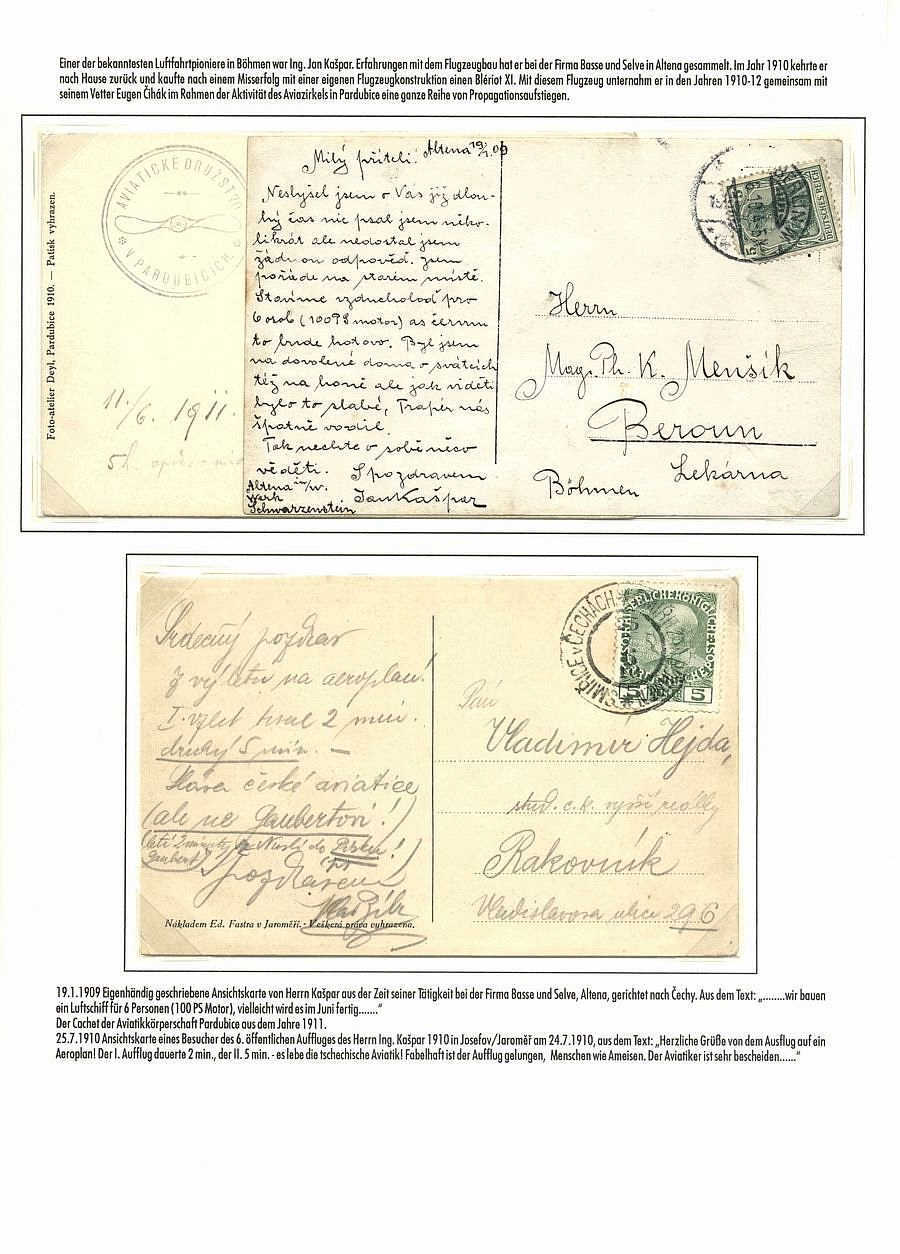 Einer der bekanntesten Luftfahrtpioniere in Böhmen war Ing. Jan Kašpar. Erfahrungen mit dem Flugzeugbau hat er bei der Firma Basse und Selve in Altena gesammelt. Im Jahr 1910 kehrte er
nach Hause zurück und kaufte nach einem Misserfolg mit einer eigenen Flugzeugkonstruktion einen Blériot XI. Mit diesem Flugzeug unternahm er in den Jahren 1910-12 gemeinsam mit
seinem Vetter Eugen Čihák im Rahmen der Aktivität des Aviazirkels in Pardubice eine ganze Reihe von Propagationsaufstiegen.
Foto-atelier Deyl, Pardubice 1910. — Patisk vyhrazen.
AVIATICKÉ DRUŽSTVO
V PARDUBICÍCH.
11./6. 1911.
5h.
Altena 19/1.09
Milý příteli!
Neslyšel jsem o Vás již dlou-
hý čas nic psal jsem něko-
likrát ale nedostal jsem
žádnou odpověd. Jsem
pořáde na starém místě.
Stavíme vzducholoď pro
6 osob (100PS motor) as červnu
to bude hotovo. Byl jsem
na dovolené doma o svátcích
též na honě ale jak viděti
bylo to slabé, Trapér nás
špatně vodil.
Tak nechte o sobě něco
věděti. S pozdravem
Jan Kašpar
Altena i/W.
Werk
Schwarzenstein
DEUTSCHES REICH
Herrn
Mag. Ph. K. Menšík
Beroun
Lekárna
Böhmen
Srdečný pozdrav
z výletu na aeroplan!
I. vzlet trval 2 min.
druhý 5 min. —
Sláva české aviatice
(ale ne Gaubertovi!)
(letí 2 minuty z Nuslí do
Gaubert)
S pozdravem
Nákladem Ed. Fastra v Jaroměři. - Veškerá práva vyhrazena.
SMIŘICE v ČECHÁCH
5 5
Pán
Vladimír Hejda,
stud. c.k. vyšší reálky
Rakovník
Vladislavova ulice 296
19.1.1909 Eigenhändig geschriebene Ansichtskarte von Herrn Kašpar aus der Zeit seiner Tätigkeit bei der Firma Basse und Selve, Altena, gerichtet nach Čechy. Aus dem Text: „........wir bauen
ein Luftschiff für 6 Personen (100 PS Motor), vielleicht wird es im Juni fertig.......“
Der Cachet der Aviatikkörperschaft Pardubice aus dem Jahre 1911.
25.7.1910 Ansichtskarte eines Besucher des 6. öffentlichen Auffluges des Herrn Ing. Kašpar 1910 in Josefov/Jaroměř am 24.7.1910, aus dem Text: „Herzliche Grüße von dem Ausflug auf ein
Aeroplan! Der I. Aufflug dauerte 2 min., der II. 5 min. - es lebe die tschechische Aviatik! Fabelhaft ist der Aufflug gelungen, Menschen wie Ameisen. Der Aviatiker ist sehr bescheiden......“